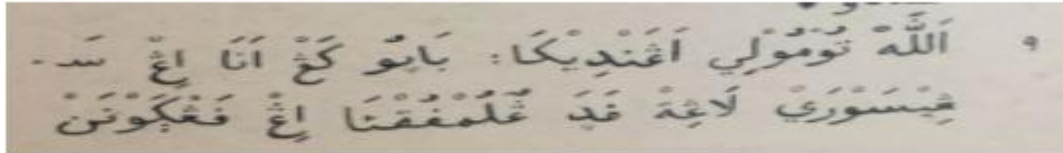 ٩ اَللّٰهْ تُوْمُوْلِي اَڠَنْدِيْكَا: بَاپُو كَڠْ اَنَا اِڠْ سَـ
ڠِيْسَوْرَيْ لَاڠِةْ ڤَدَ ڠْلُمْڤُقْنَا اِڠْ ڤَڠْڮَوْنَنْ